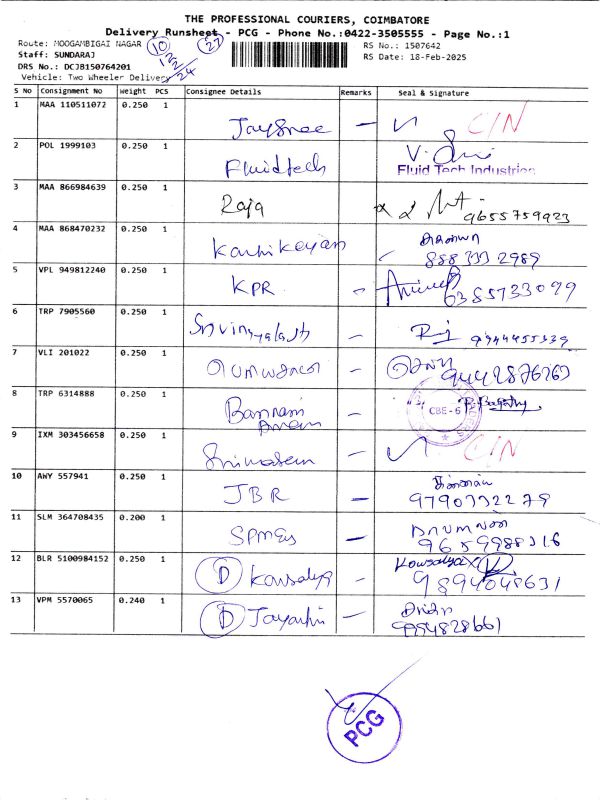 THE PROFESSIONAL COURIERS, COIMBATORE
Delivery Runsheet - PCG - Phone No.:0422-3505555 - Page No.:1
Route: MOOGAMBIGAI NAGAR 10 22 RS No.: 1507642
Staff: SUNDARAJ RS Date: 18-Feb-2025
DRS No.: DCJB150764201
Vehicle: Two Wheeler Delivery
S No Consignment No Weight PCS Consignee Details Remarks Seal & Signature
1 MAA 110511072 0.250 1 Jaysree C/N
2 POL 1999103 0.250 1 Fluidtech
Fluid Tech Industries
3 MAA 866984639 0.250 1 Raja 9655759923
4 MAA 868470232 0.250 1 Karthikeyan
888 333 2989
5 VPL 949812240 0.250 1 KPR 6385733099
6 TRP 7905560 0.250 1 9944455339
7 VLI 201022 0.250 1 9442876263
8 TRP 6314888 0.250 1 Bannari
Amman CBE - 6
9 IXM 303456658 0.250 1 C/N
10 AWY 557941 0.250 1 JBR
9790332279
11 SLM 364708435 0.200 1
9659988316
12 BLR 5100984152 0.250 1 D Kowsalya Kowsalya
9894048631
13 VPM 5570065 0.240 1 D Jayanthi
9994828661
PCG